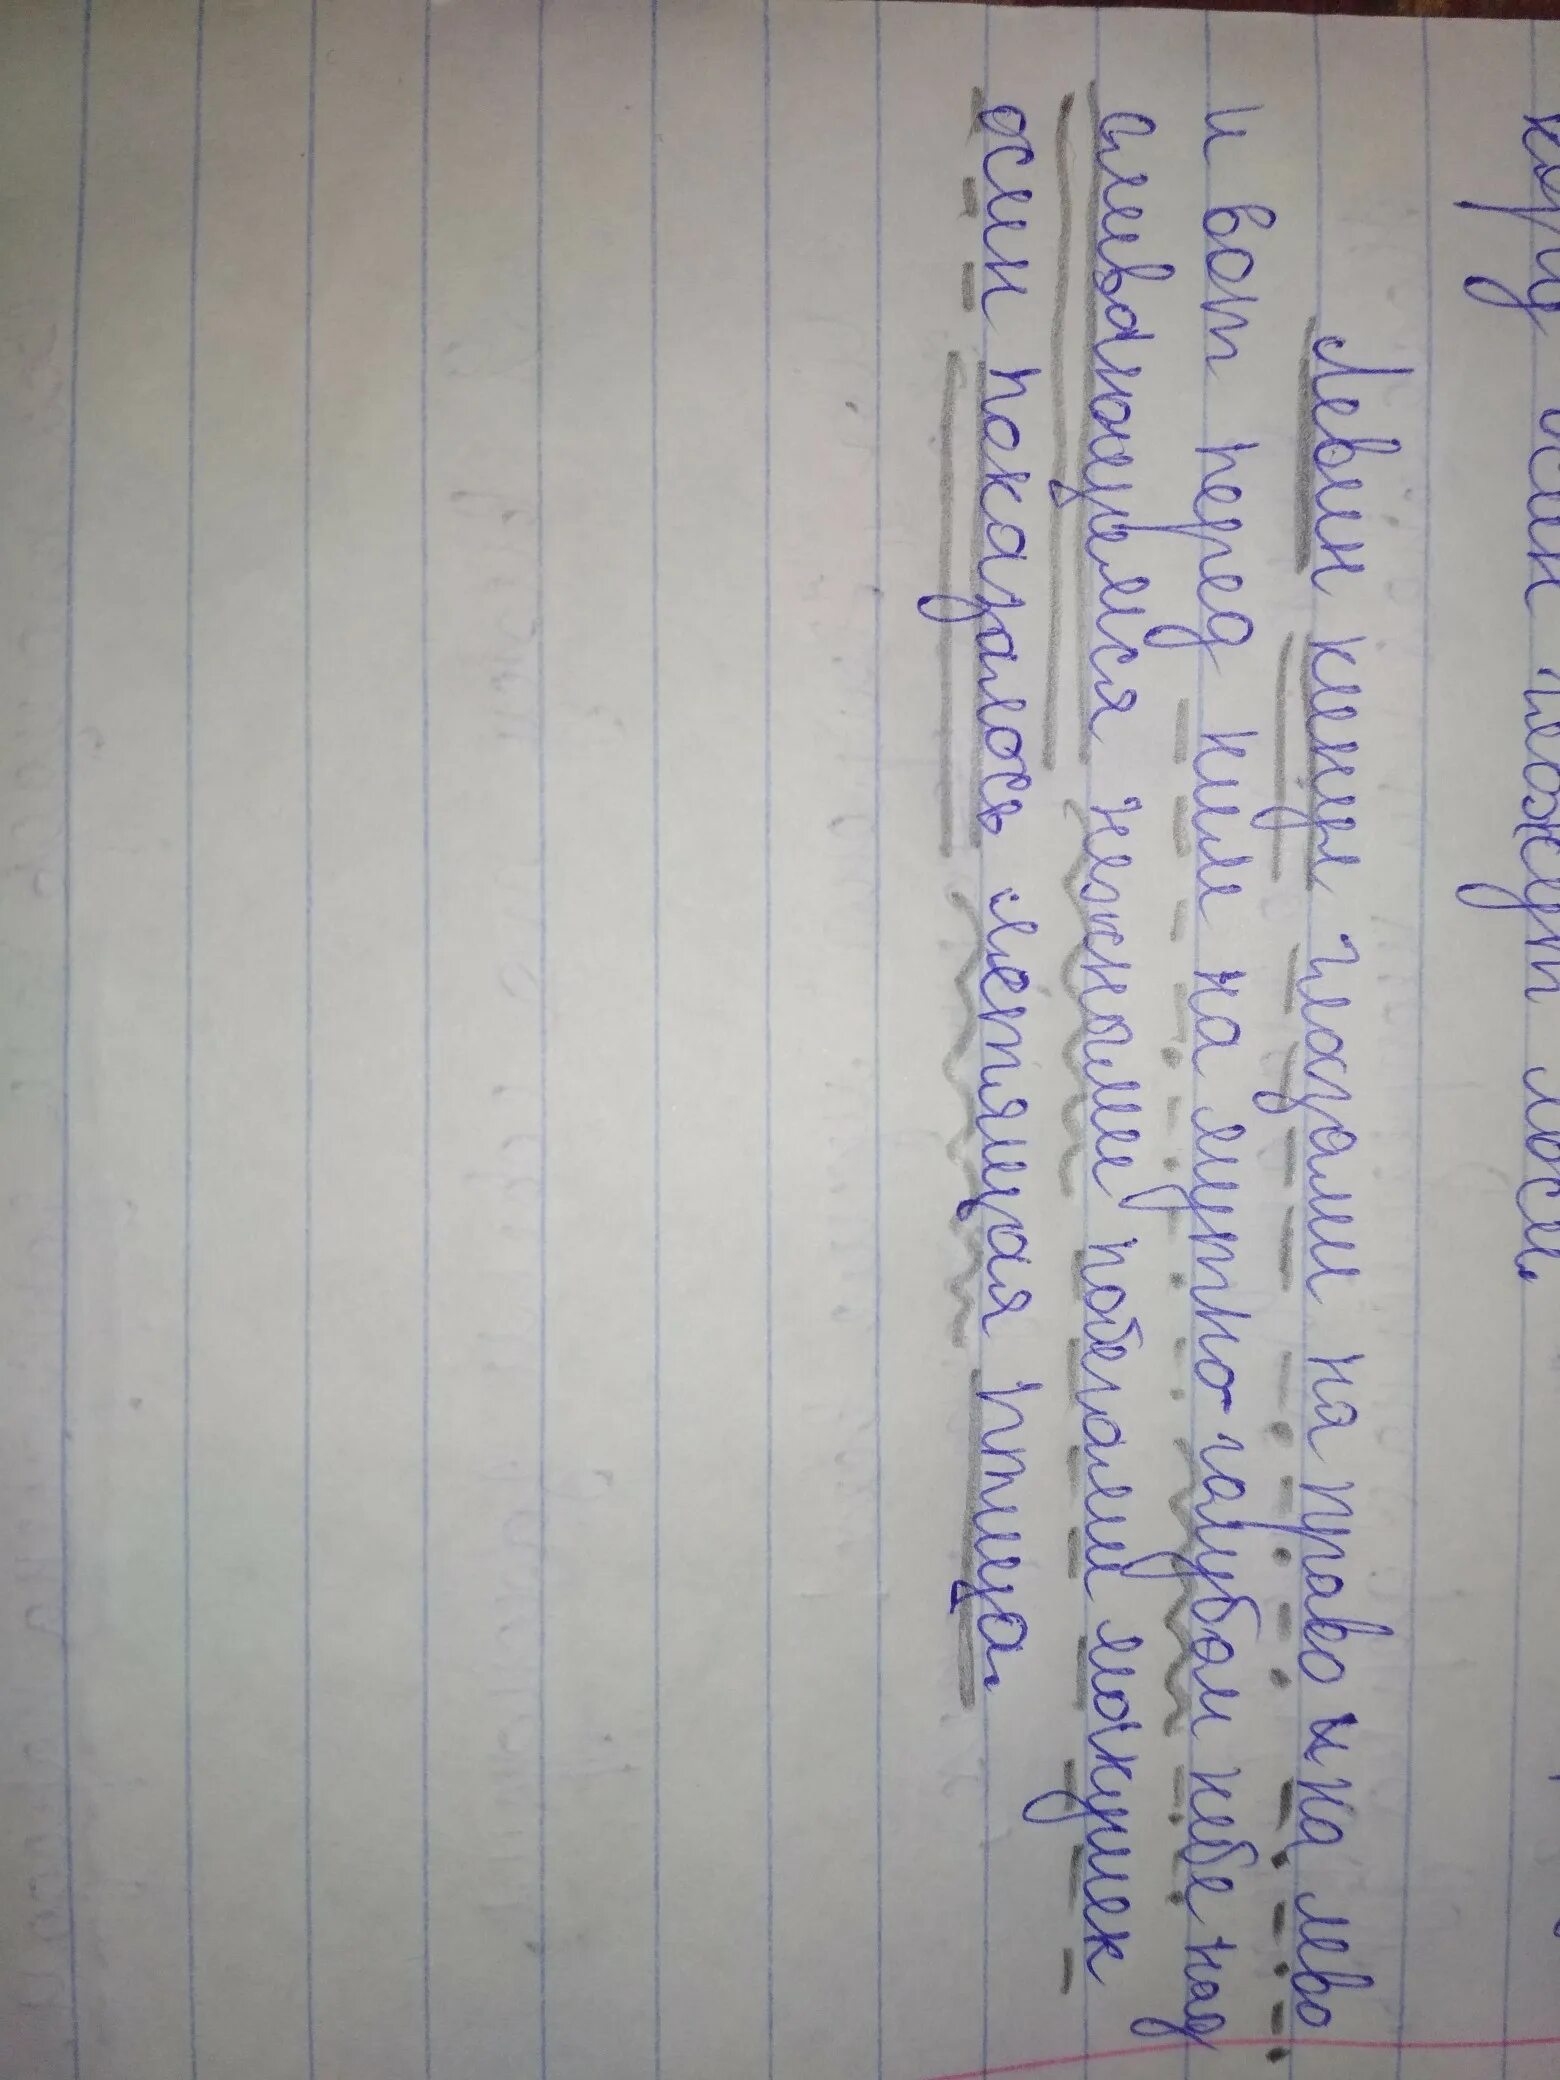 кору осин гложут лоси.
Левин кинул глазами на право и на лево
и вот перед ним на мутно голубом небе над
сливающемися нежными побегами макушек
осин показалось летящая птица.